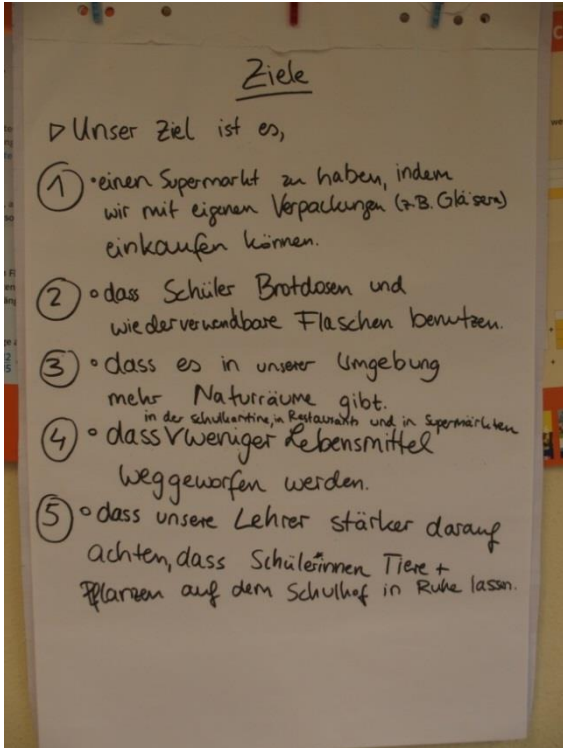 Ziele
▷ Unser Ziel ist es,
① • einen Supermarkt zu haben, indem
wir mit eigenen Verpackungen (z.B. Gläsern)
einkaufen können.
② • dass Schüler Brotdosen und
wiederverwendbare Flaschen benutzen.
③ • dass es in unserer Umgebung
mehr Naturräume gibt.
in der Schulkantine, in Restaurants und in Supermärkten
④ • dass V weniger Lebensmittel
weggeworfen werden.
⑤ • dass unsere Lehrer stärker darauf
achten, dass Schüler*innen Tiere +
Pflanzen auf dem Schulhof in Ruhe lassen.